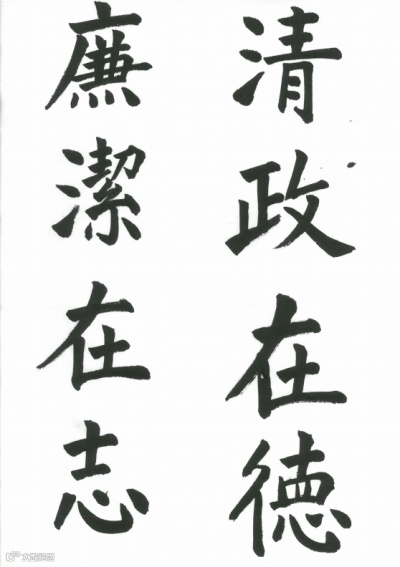 清政在德
廉潔在志